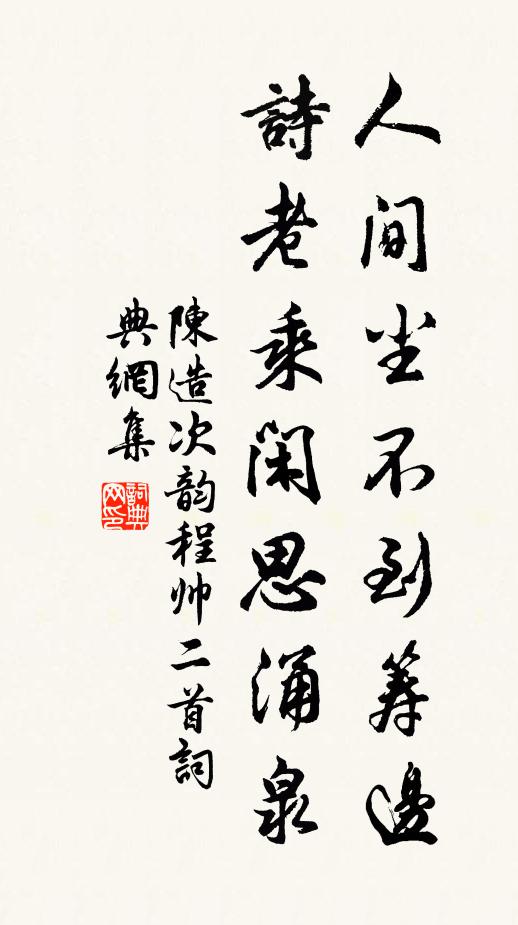 人间尘不到筹邊
詩老乘闲思涌泉
陳造次韵程帅二首詞
典網集
詞典网印